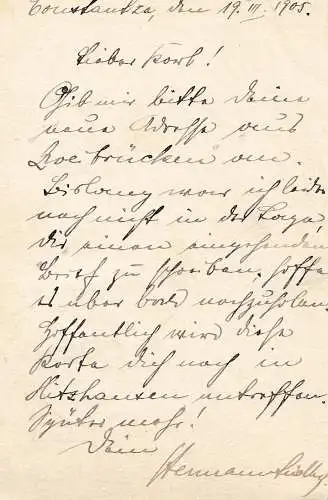 Constantza, den 19. III. 1905.
Lieber Korb!
Gib mir bitte Deine
neue Adresse aus
an.
Bislang war ich leider
noch nicht in der Lage,
Dir einen eingehenden
Brief zu schreiben, hoffe
es aber bald nachzuholen.
Hoffentlich wird diese
Karte Dich noch in
antreffen.
Später mehr!
Dein
Hermann